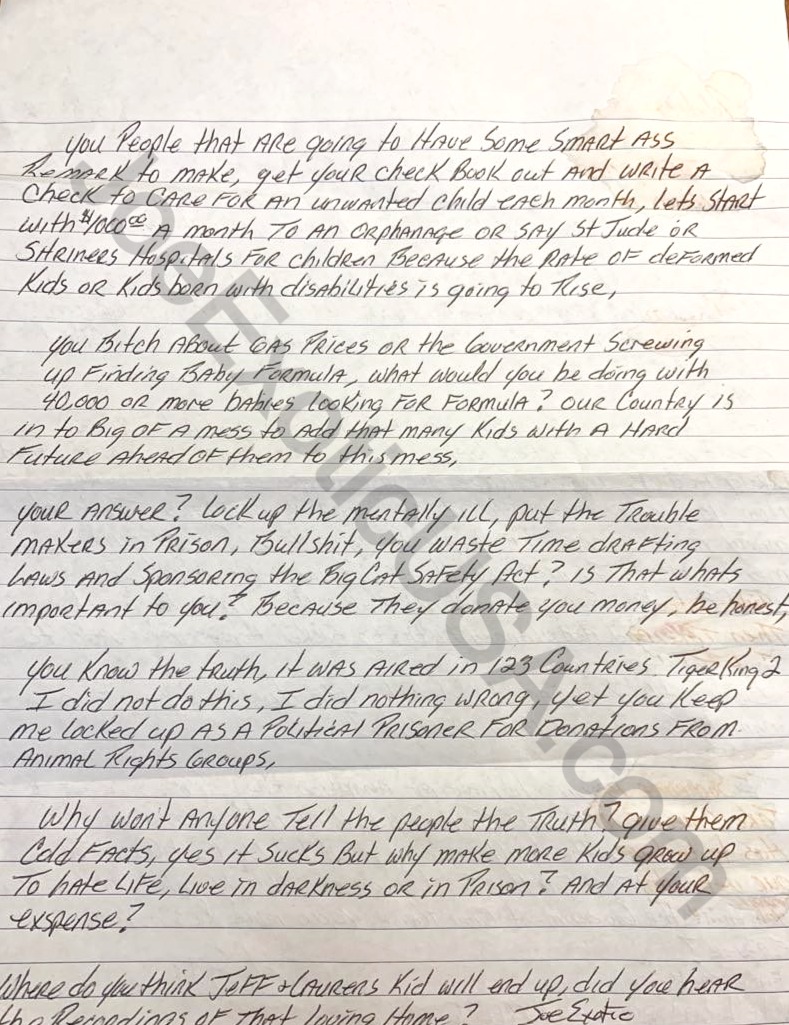 you People that ARE going to Have Some Smart Ass
Remark to make, get your check Book out And write A
Check to CARE FOR An unwanted child each month, lets start
with $1000.00 A month To An orphanage or say St Jude or
Shriners Hospitals For children Because the Rate of deformed
Kids or Kids born with disabilities is going to Rise,
you Bitch About GAS Prices or the Government Screwing
up Finding Baby Formula, what would you be doing with
40,000 or more babies looking For Formula? our Country is
in to Big of A mess to Add that many Kids with A Hard
Future Ahead of them to this mess,
your Answer? Lock up the mentally ill, put the Trouble
makers in Prison, Bullshit, you waste Time drafting
Laws And Sponsoring the Big Cat Safety Act? is That whats
important to you? Because They donate you money, be honest,
you Know the truth, it was Aired in 123 Countries Tiger King 2
I did not do this, I did nothing wrong, yet you Keep
me locked up As A Political Prisoner For Donations From
Animal Rights Groups,
Why won't Anyone Tell the people the Truth? give them
Cold Facts, yes it Sucks But why make more Kids grow up
To hate Life, Live in darkness or in Prison? And At your
exspense?
Where do you think Jeff & Laurens Kid will end up, did you hear
the Recordings of That loving Home? Joe Exotic
JoeExoticUSA.com